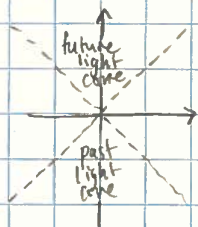 future
light
cone
past
light
cone